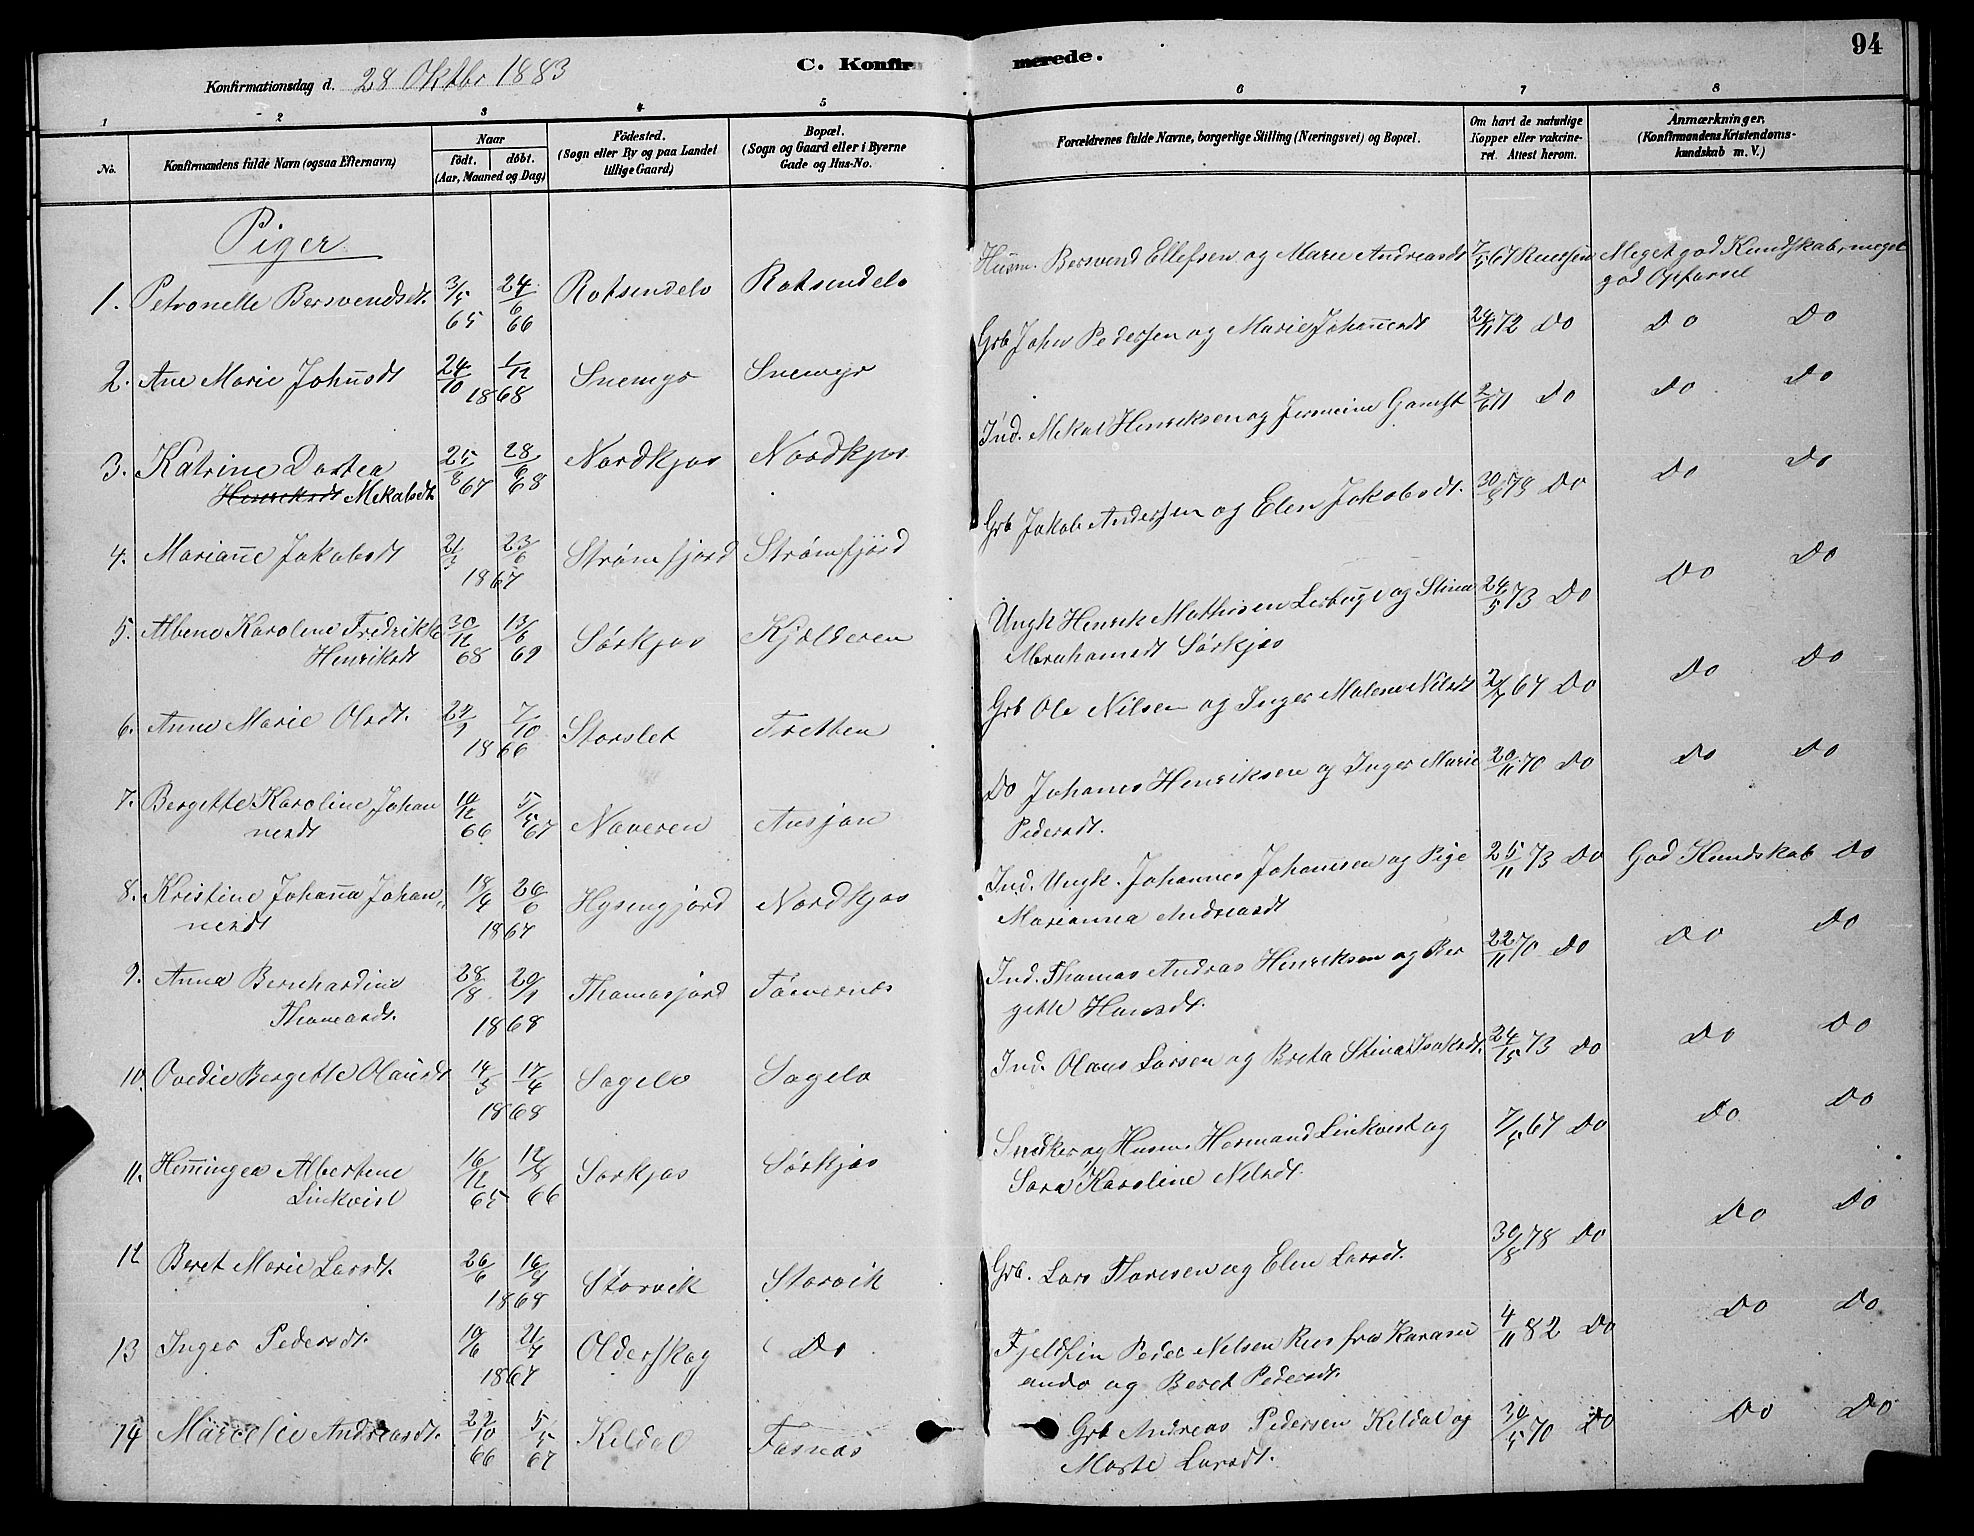 94
C. Konfirmerede.
Konfirmationsdag d. 28 Oktbr 1883
1 2 3 4 5 6 7 8
No.
Konfirmandens fulde Navn (ogsaa Efternavn)
Naar
født. døbt.
(Aar, Maaned og Dag)
Fødested.
(Sogn eller By og paa Landet
tillige Gaard)
Bopæl.
(Sogn og Gaard eller i Byerne
Gade og Hus-No.
Forældrenes fulde Navne, borgerlige Stilling (Næringsvei) og Bopæl.
Om havt de naturlige
Kopper eller vakcine-
ret. Attest herom.
Anmærkninger.
(Konfirmandens Kristendoms-
kundskab m. V.)
Piger
1. Petronelle Bersvendsdt. 3/5 65 24/6 66 Rotsendelv Rotsendelv Husm. Bersvend Ellefsen og Marie Andreasdt 7/5 67 Meget god Kundskab, meget
god Opførsel
2. Ane Marie Johnsdt 24/10 1/12 1868 Snemyr Snemyr Grb John Pedersen og Marie Johannesdt 24/11 72 Do Do Do
3. Katrine Dortea 25/8 67 28/6 68 Nordkjos Nordkjos Ind. Mekal Henriksen og Jermine Gamst 2/6 71 Do Do Do
Henriksdt Mekalsdt
4. Marianne Jakobsdt 21/3 23/6 1867 Strømfjord Strømfjord Grb Jakob Andersen og Elen Jakobsdt. 30/8 78 Do Do Do
5. Albene Karoline Fredrikke 30/12 68 13/6 69 Sørkjos Kjelderen Ungk Henrik Mathisen og Stina 24/5 73 Do Do Do
Henriksdt Abrahamsdt Sørkjos
6. Anne Marie Olsdt. 22/9 7/10 1866 Storslet Fretten Grb Ole Nilsen og Inger Malene Nilsdt 2/7 67 Do Do Do
7. Bergette Karoline Johan 19/12 66 5/5 67 Naveren Ansjon Do Johanes Henriksen og Inger Marie 20/11 70 Do Do Do
nesdt Pedersdt.
8. Kristine Johanna Johan- 18/4 26/6 1867 Hysingjord Nordkjos Ind. Ungk. Johannes Johansen og Pige 25/11 73 Do God Kundskab Do
nesdt Marianna Andreasdt
9. Anna Bernhardine 28/8 20/9 1868 Thomasjord Ind. Thomas Andras Henriksen og Ber 22/11 70 Do Do Do
Thomasdt. gette Hansdt.
10. Ovedie Bergette Olausdt 14/3 14/4 1868 Sagelv Sagelv Ind. Olaus Larsen og Breta Stina Isaksdt. 24/15 73 Do Do Do
11. Henningea Albertene 16/12 65 12/8 66 Sørkjos Sørkjos Snedker og Husm. Hermand Linkvist og 7/5 67 Do Do Do
Linkvist Sara Karoline Nilsdt.
12 Beret Marie Larsdt. 26/6 16/9 1868 Storvik Storvik Grb. Lars Thoresen og Elen Larsdt. 30/8 78 Do Do Do
13 Inger Pedersdt. 19/6 21/7 1867 Olderskog Do Fjeldfin Peder Nilsen fra Karasu 4/11 82 Do Do Do
ando og Beret Pedersdt.
14 Marelie Andreasdt. 22/10 66 5/5 67 Kildal Fasnæs Grb Andreas Pedersen Kildal og 30/5 70 Do Do Do
Marte Larsdt.